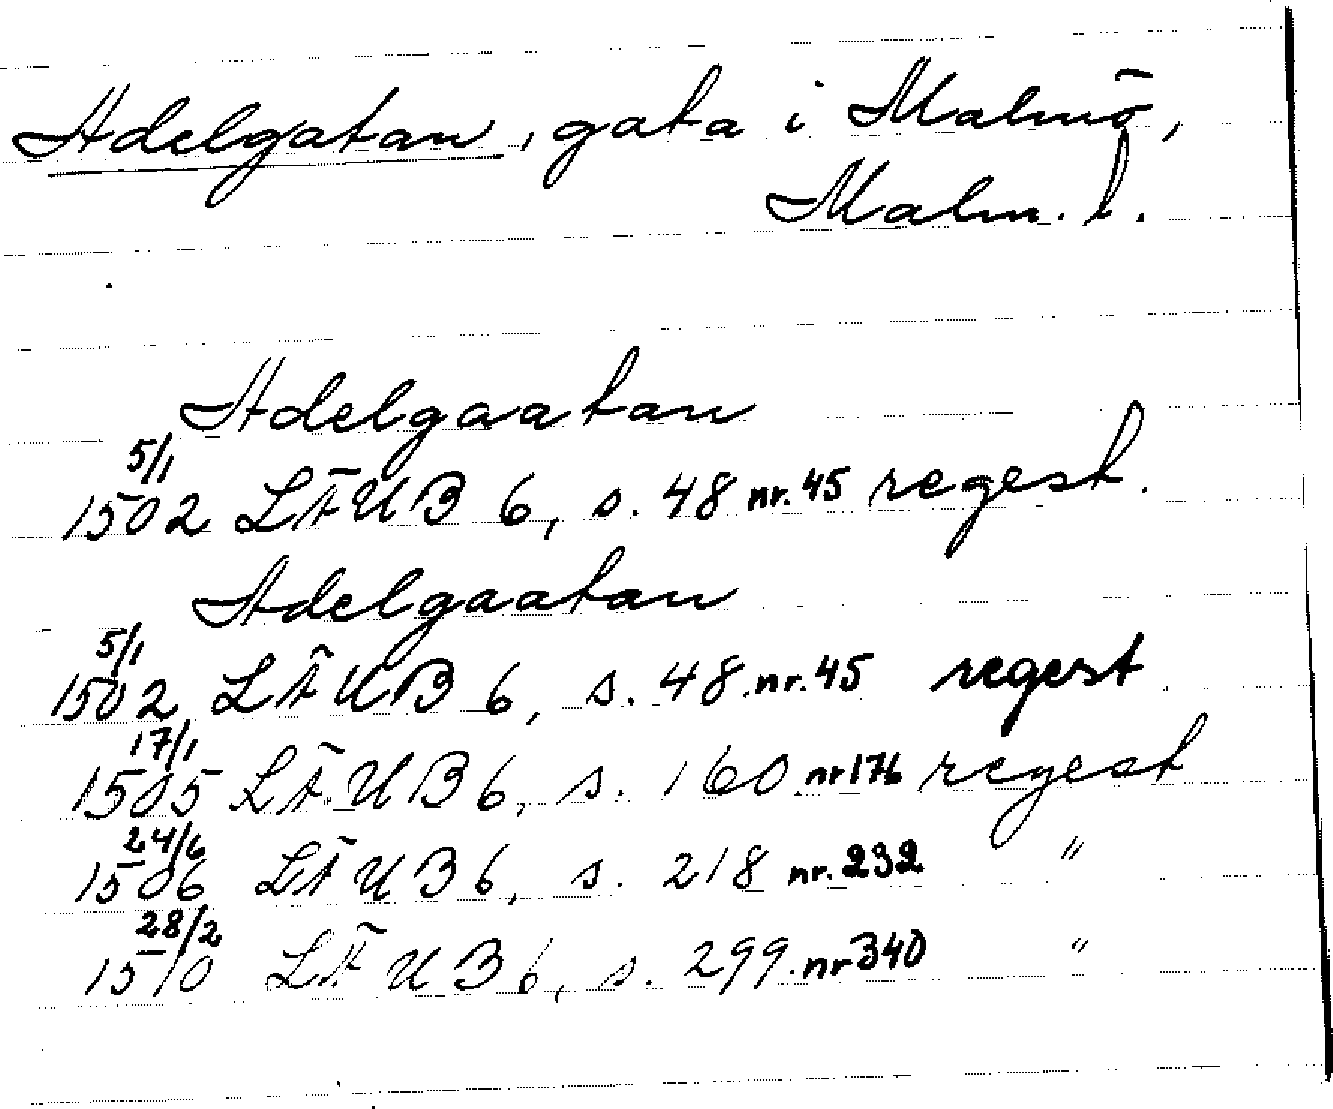 Adelgatan, gata i Malmö,
Malm. l.
Adelgaatan
5/1
1502 LÄUB 6, s. 48 nr. 45 regest.
Adelgaatan
5/1
1502 LÄUB 6, s. 48 nr. 45 regest
17/1
1505 LÄUB 6, s. 160 nr 176 regest
24/6
1506 LÄUB 6, s. 218 nr. 232 "
28/2
1510 LÄUB 6, s. 299 nr 340 "